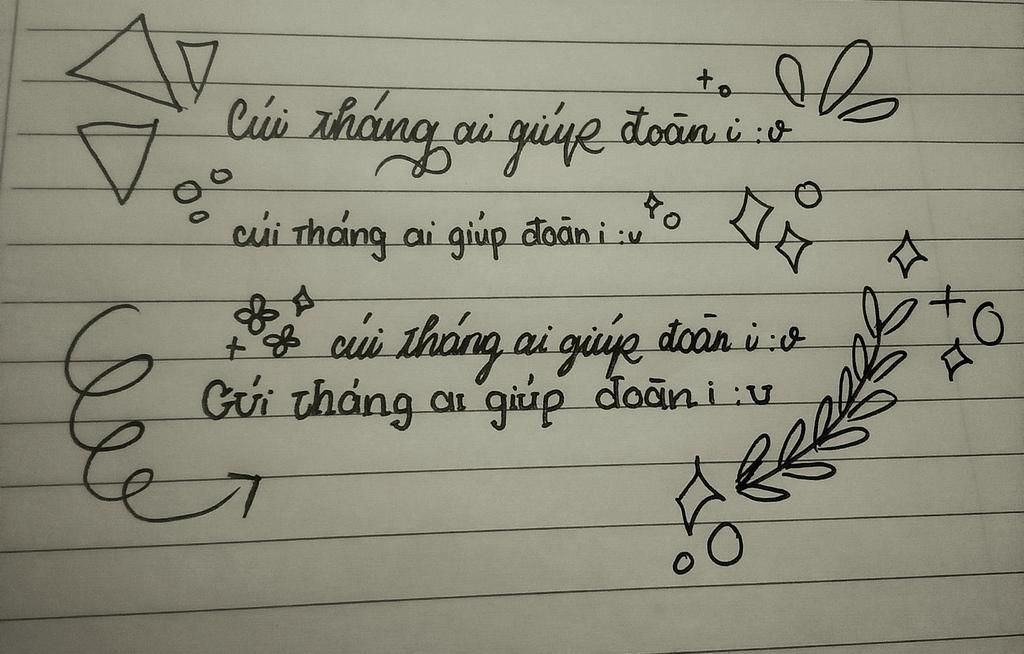 Cúi tháng ai giúp đoãn i :v
cúi tháng ai giúp đoãn i :v
cúi tháng ai giúp đoãn i :v
Cúi tháng ai giúp đoãn i :v